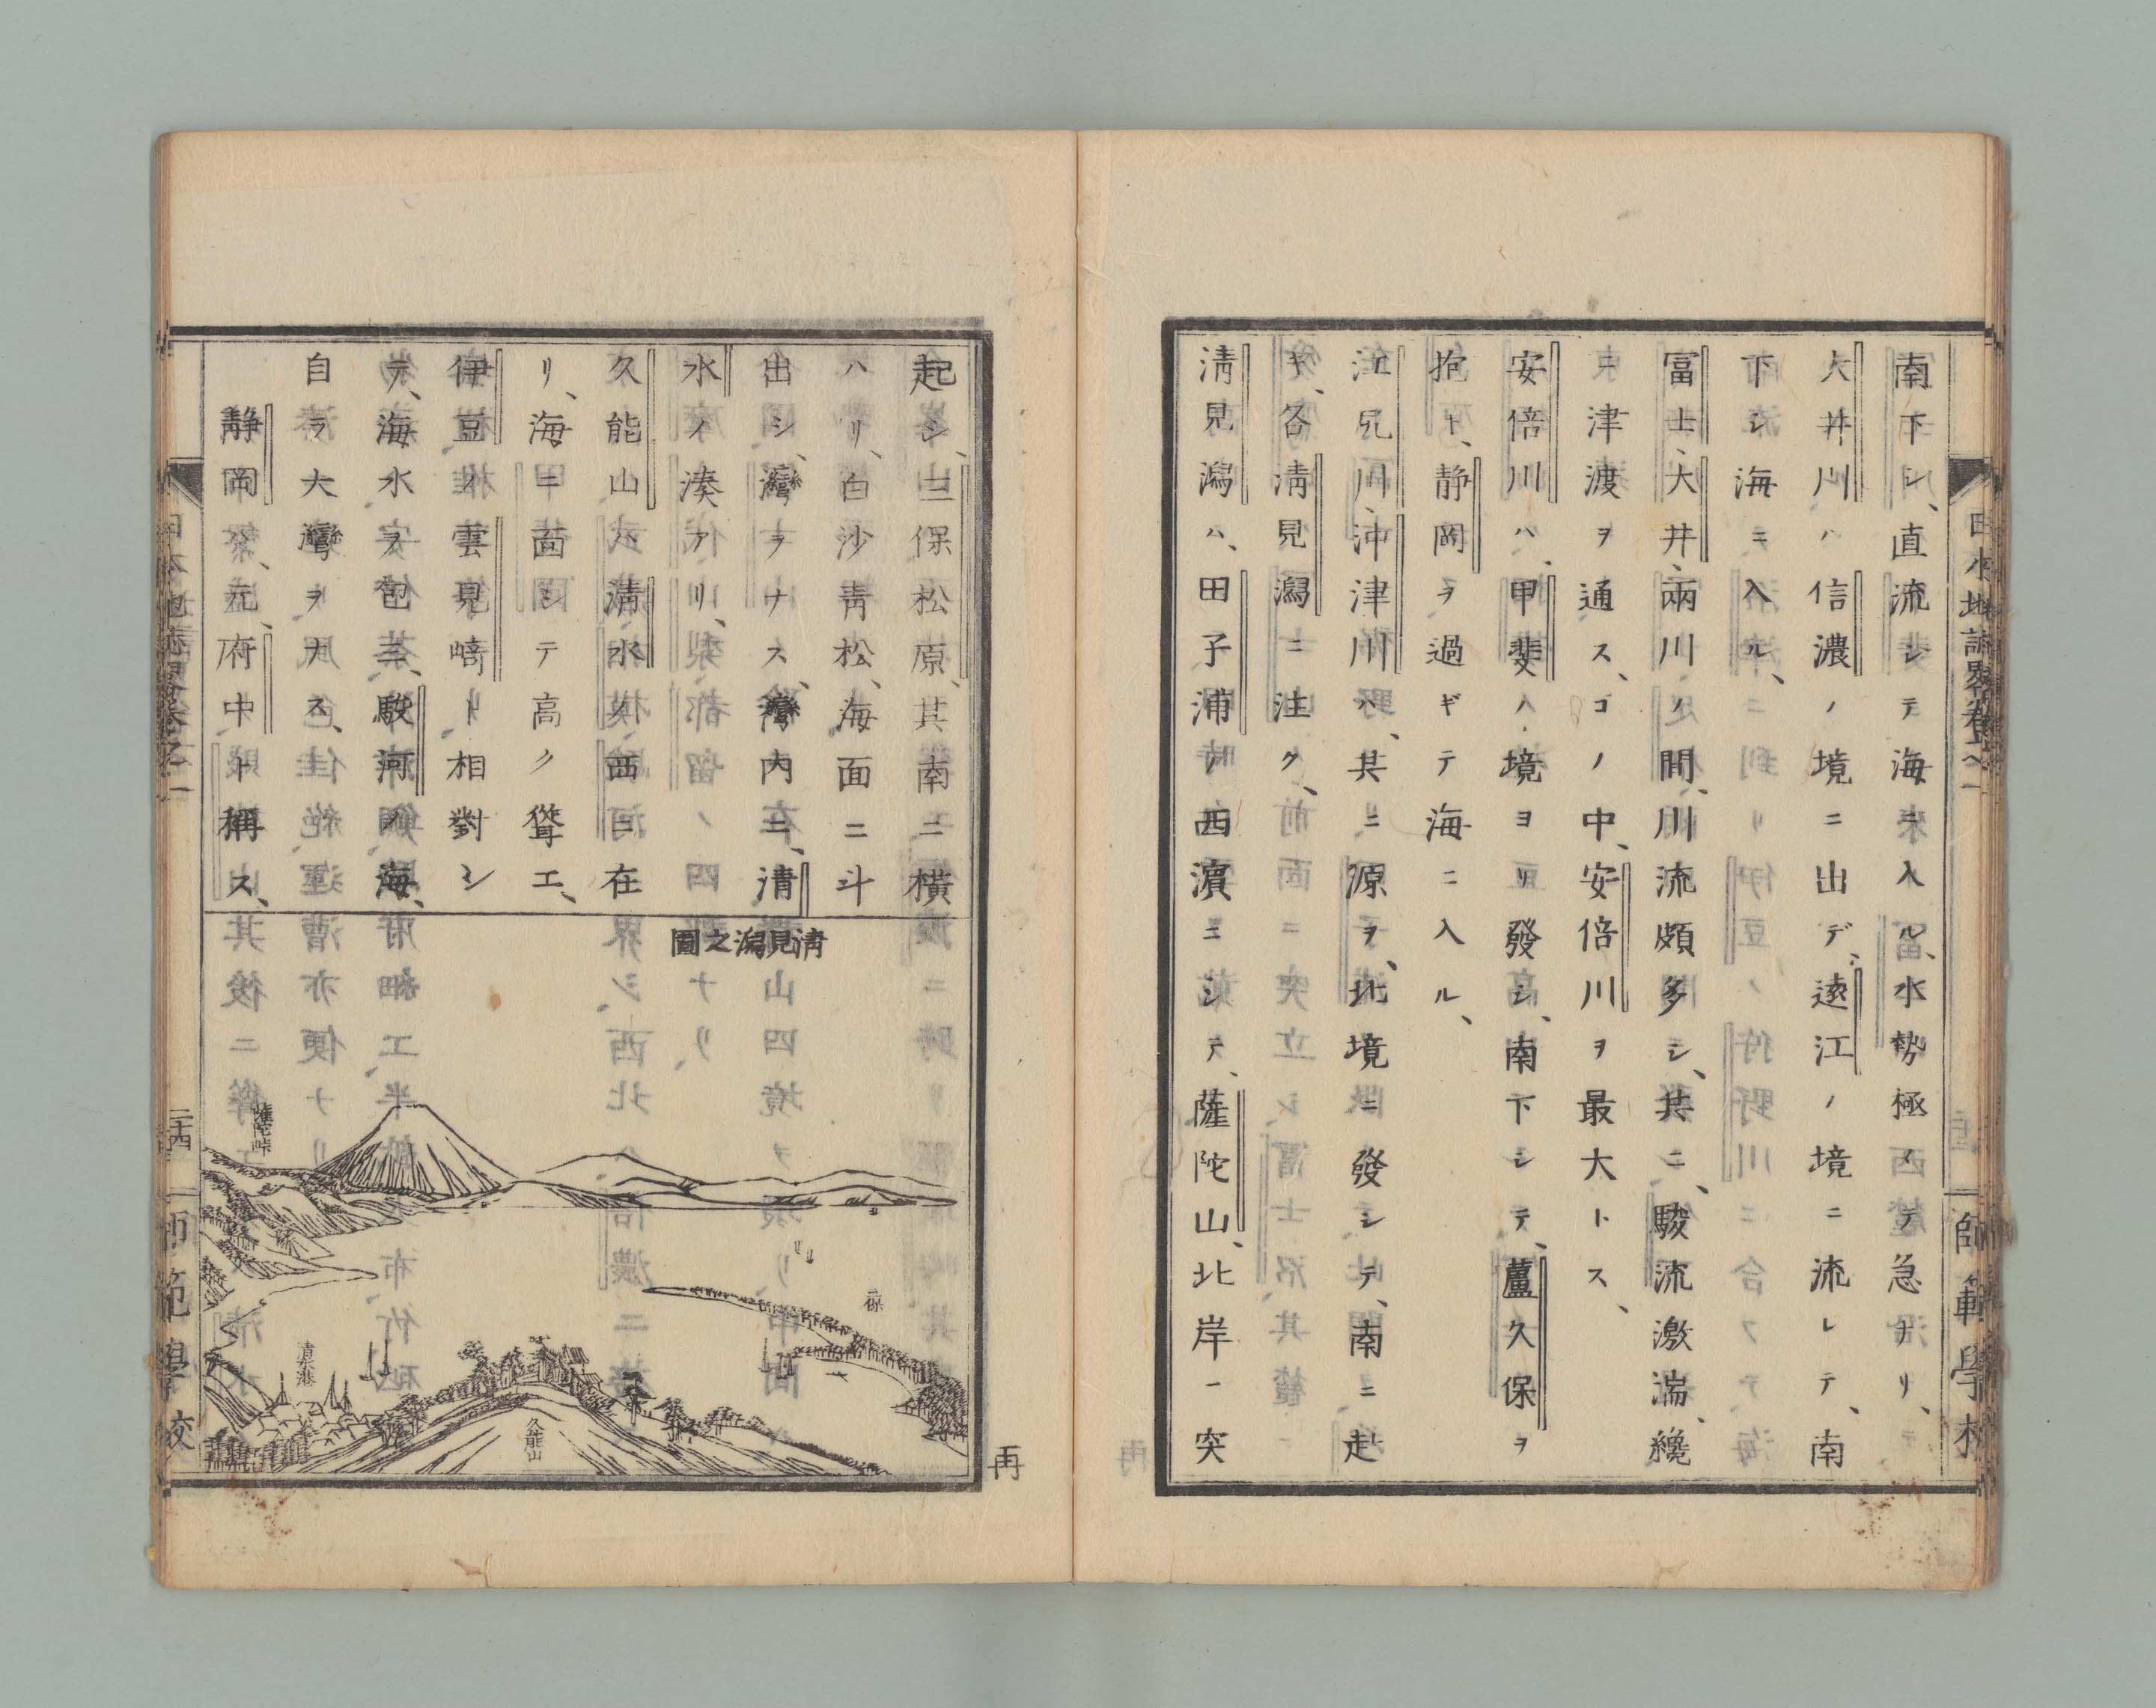 南下シ、直流シテ海ニ入ル、水勢極メテ急ナリ、
大井川ハ信濃ノ境ニ出デ、遠江ノ境ニ流レテ、南
下シ海ニ入ル、
冨士、大井、兩川ノ間、川流頗多シ、共ニ、駿流激湍、纔
ニ津渡ヲ通ス、コノ中、安倍川ヲ最大トス、
安倍川ハ、甲斐ノ境ヨリ發シ、南下シテ、蘆久保ヲ
抱ト、静岡ヲ過ギテ海ニ入ル、
江尻川、沖津川ハ、其ニ源ヲ、北境ニ發シテ、南ニ赴
キ、各淸見潟ニ注ク、
淸見潟ハ、田子浦ノ西濵ニシテ、薩陀山、北岸ニ突
日本地誌畧卷之一
師範學校
起シ、三保松原、其南ニ橫
ハリ、白沙靑松、海面ニ斗
出シ、灣ヲナス、灣内ニ、淸
水ノ湊アリ、
久能山ハ、淸水ノ西ニ在
リ、海ニ面シテ高ク聳エ、
伊豆ノ雲見﨑ト相對シ
テ、海水ヲ包ミ、駿河ノ海、
自ラ大灣ヲナス、
静岡ハ、元府中ト稱ス、
淸見潟之圖
薩陀峠
三保
淸水港
久能山
再
日本地誌畧卷之一
二十四
師範學校